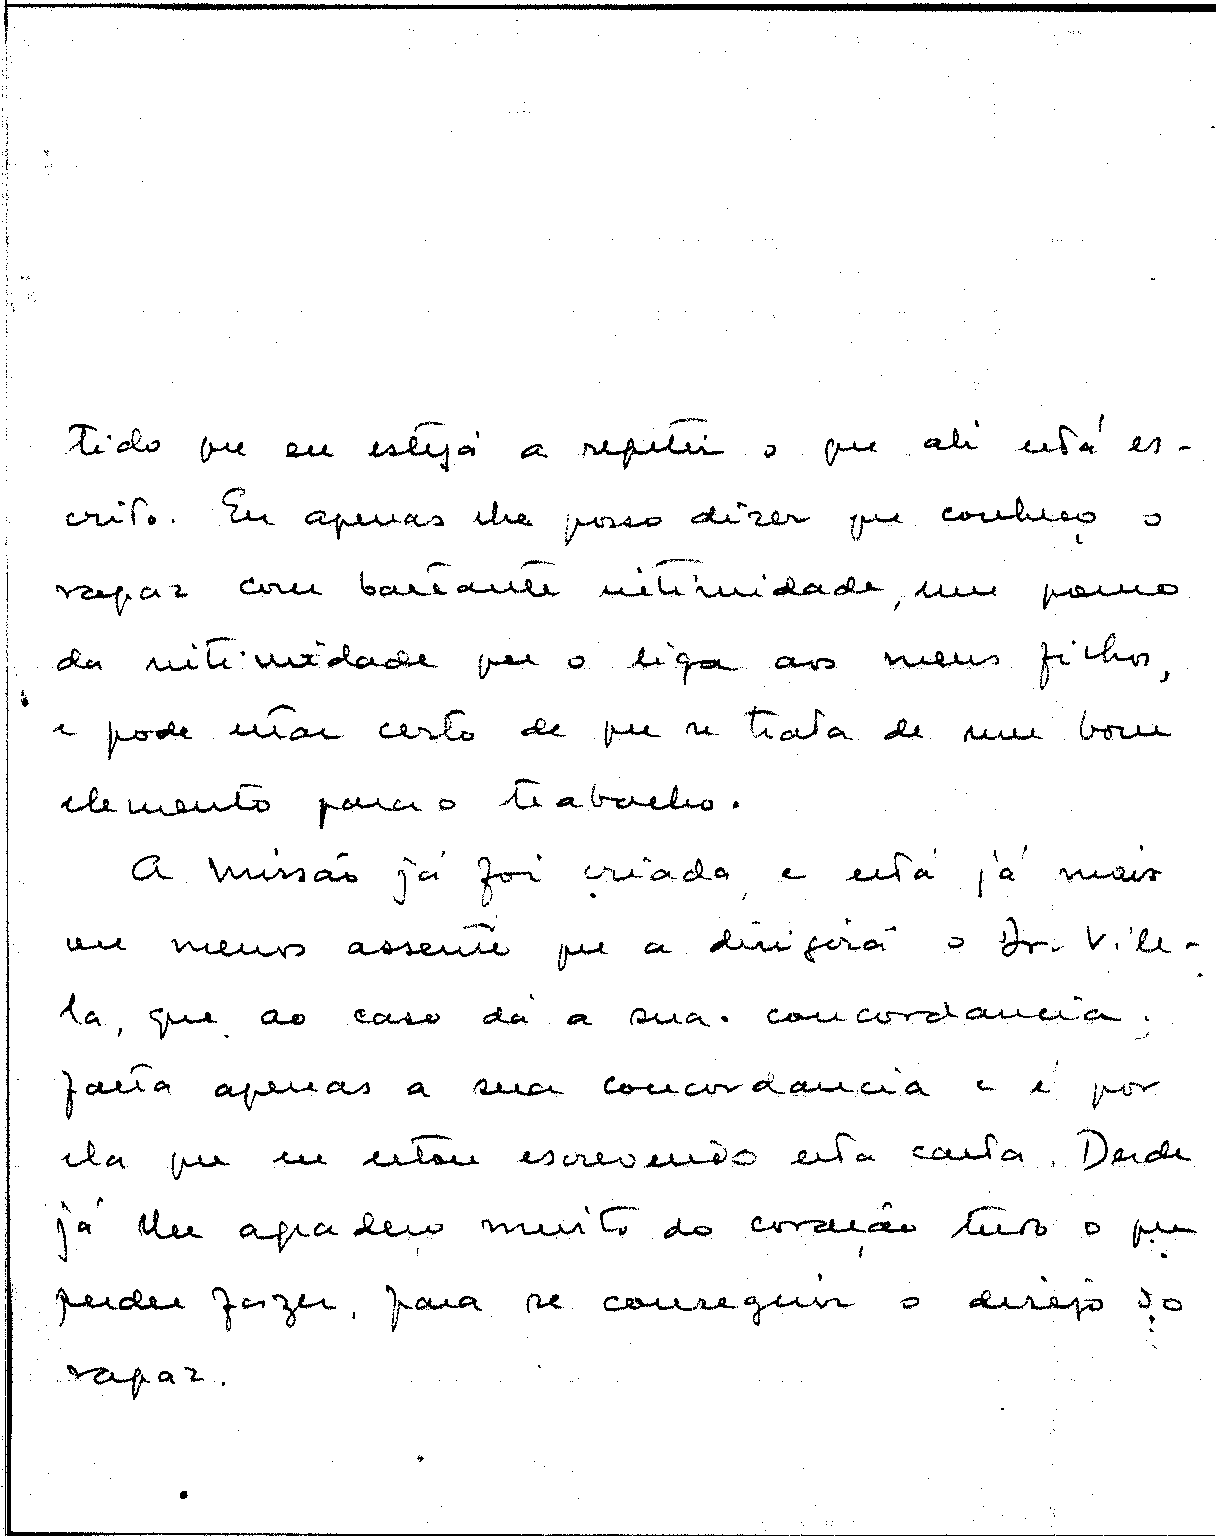 tido que eu esteja a repetir o que ali está es-
crito. Eu apenas lhe posso dizer que conheço o
rapaz com bastante intimidade, um pouco
da intimidade que o liga aos meus filhos,
e pode estar certo de que se trata de um bom
elemento para o trabalho.
A Missão já foi criada, e está já mais
ou menos assente que a dirigirá o Dr. Vile-
la, que ao caso dá a sua concordancia.
Falta apenas a sua concordancia e é por
ela que eu estou escrevendo esta carta. Desde
já lhe agradeço muito do coração tudo o que
puder fazer, para se conseguir o desejo do
rapaz.